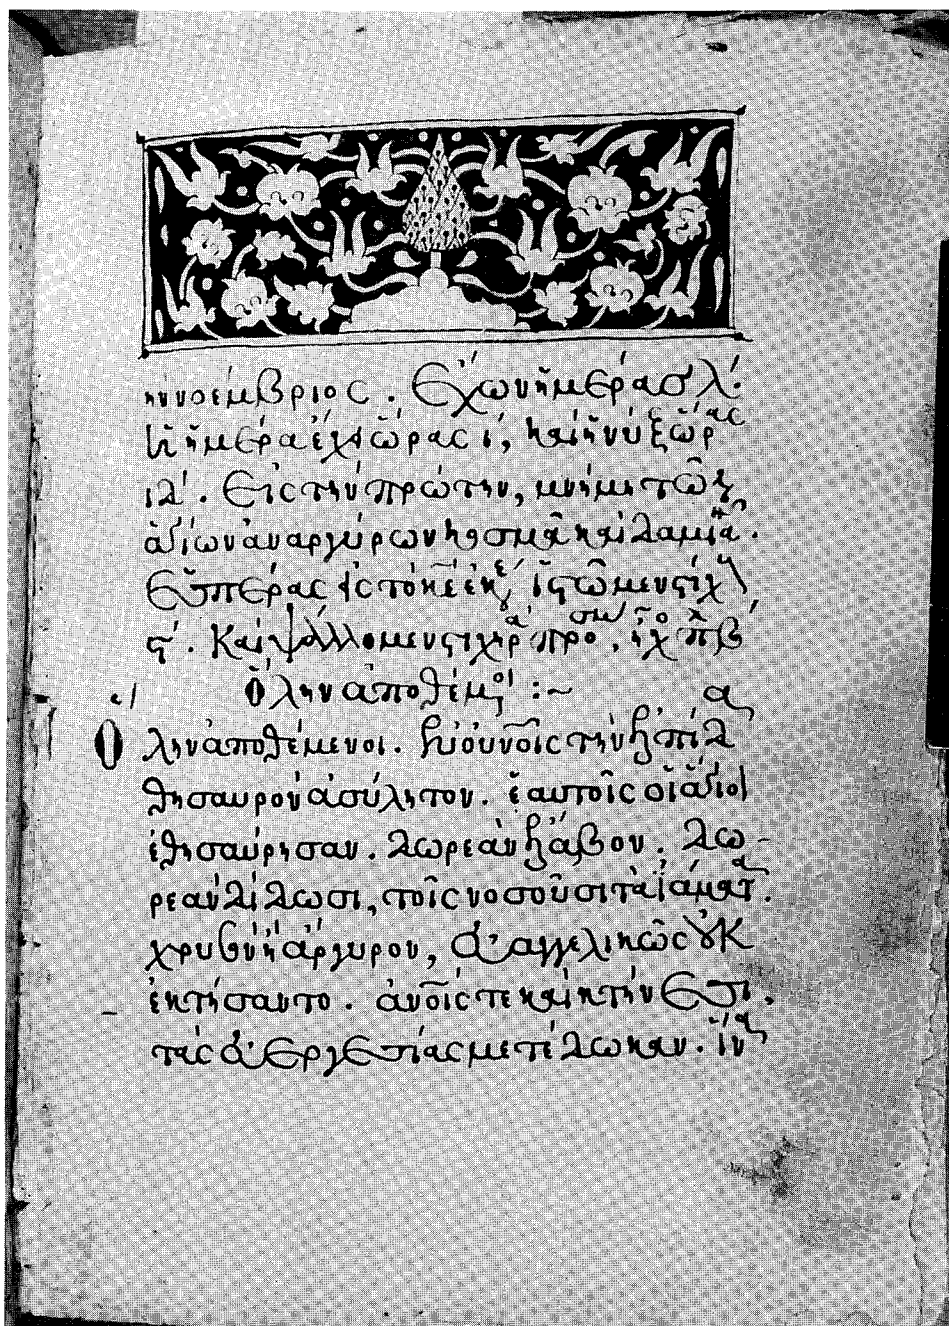 μὴν νοέμβριος. Ἔχων ἡμέρας λ'.
ἡ ἡμέρα ἔχει ὥρας ι', καὶ ἡ νὺξ ὥρας
ιδ'. Εἰς τὴν πρώτην, μνήμη τῶν
ἁγίων ἀναργύρων κοσμᾶ καὶ δαμιανοῦ.
Ἑσπέρας εἰς τὸ κε ἐκεκ ἱστῶμεν στίχ
ς'. Καὶ ψάλλομεν στιχηρ προσομ, ἦχο πλ β'
Ὅλην ἀποθέμενοι :~
Ὅλην ἀποθέμενοι. ἐν οὐνοῖς τὴν ἐλπίδα
θησαυρὸν ἀσύλητον. ἑαυτοῖς οἱ ἅγιοι
ἐθησαύρησαν. δωρεὰν ἔλαβον. δω-
ρεὰν διδωσι, τοῖς νοσοῦσι τὰ ἰάματα.
χρυσὸν ἢ ἄργυρον, εὐαγγελικῶς οὐκ
ἐκτήσαντο. ἀνοῖς τε καὶ κτήνεσι.
τὰς εὐεργεσίας μετέδωκαν. ἵνα